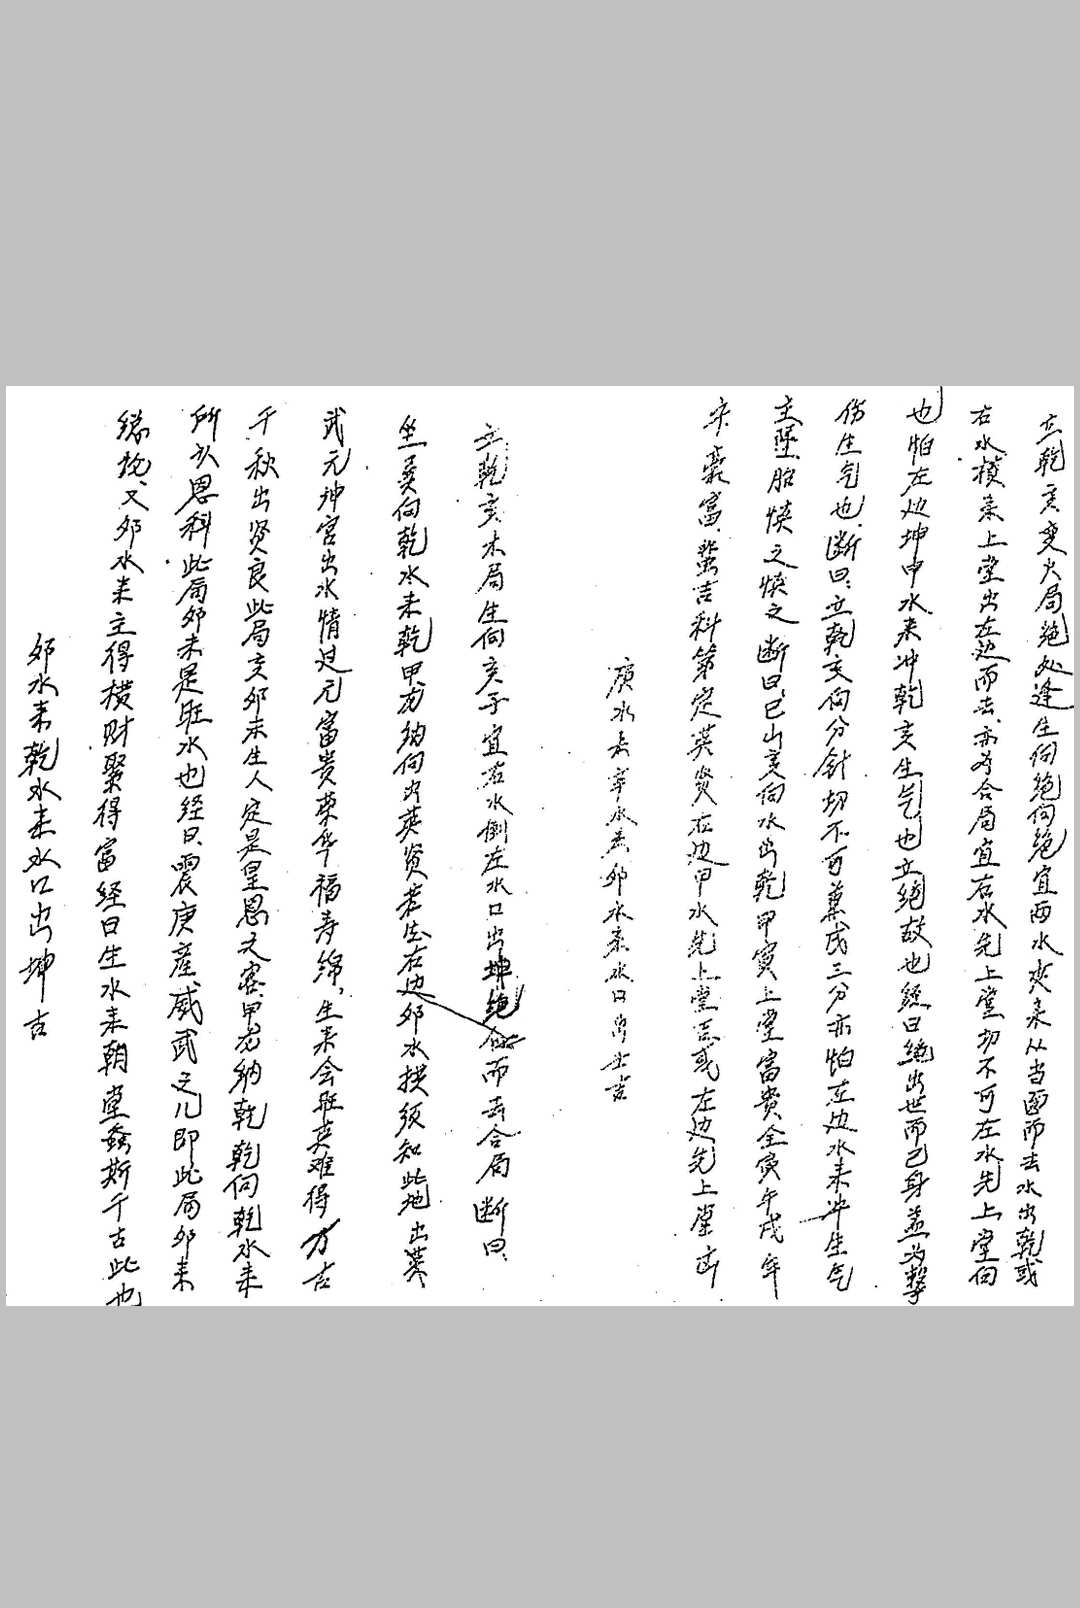 立乾亥变火局绝处逢生向绝向绝宜两水夹来从当面而去水出乾或
右水横来上堂出左边而去亦为合局宜右水先上堂切不可左水先上堂向
也怕左边坤申水来冲乾亥生气也立绝故也经曰绝出世而己身盖为擊
伤生气也断曰立乾亥向分針切不可兼戌三分亦怕左边水来冲生气
主墜胎慎之慎之断曰巳山亥向水出乾甲寅上堂富贵全寅午戌年
来豪富蜚吉科第定英贤右边甲水先上堂忌或左边先上堂凶
庚水去辛水去卯水来水口吉
立乾亥木局生向亥子宜右水倒左水口出坤绝位而去合局断曰
坐巽向乾水来乾甲龙纳向出英贤若在右边卯水拱须知此地出英
武元神宫出水情过元富贵荣华福寿绵生来会旺真难得方吉
千秋出贤良此局亥卯未生人定是皇恩之客甲龙納乾乾向乾水来
所以恩科此局卯未是旺水也经曰震庚産威武之儿即此局卯来
缘故又卯水来主得横财聚得富经曰生水来朝堂螽斯千古此也
卯水来乾水来水口出坤吉